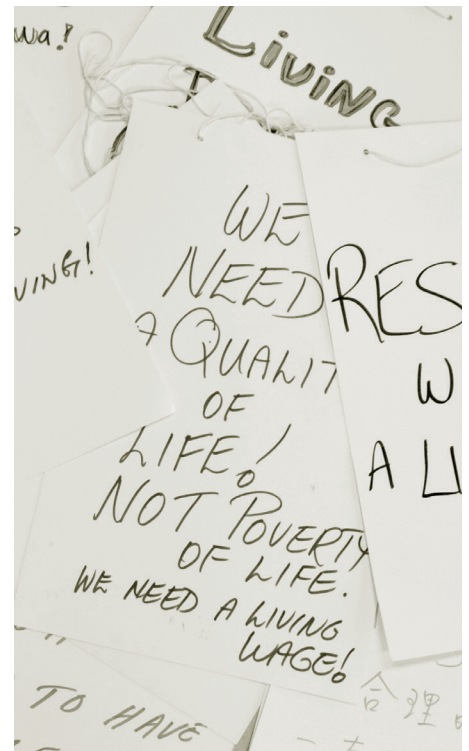 Living
WE
NEED
A QUALIT
OF
LIFE!
NOT POVERTY
OF LIFE.
WE NEED A LIVING
WAGE!
RES
W
A LI
VING!
wa!
TO HAVE
合理